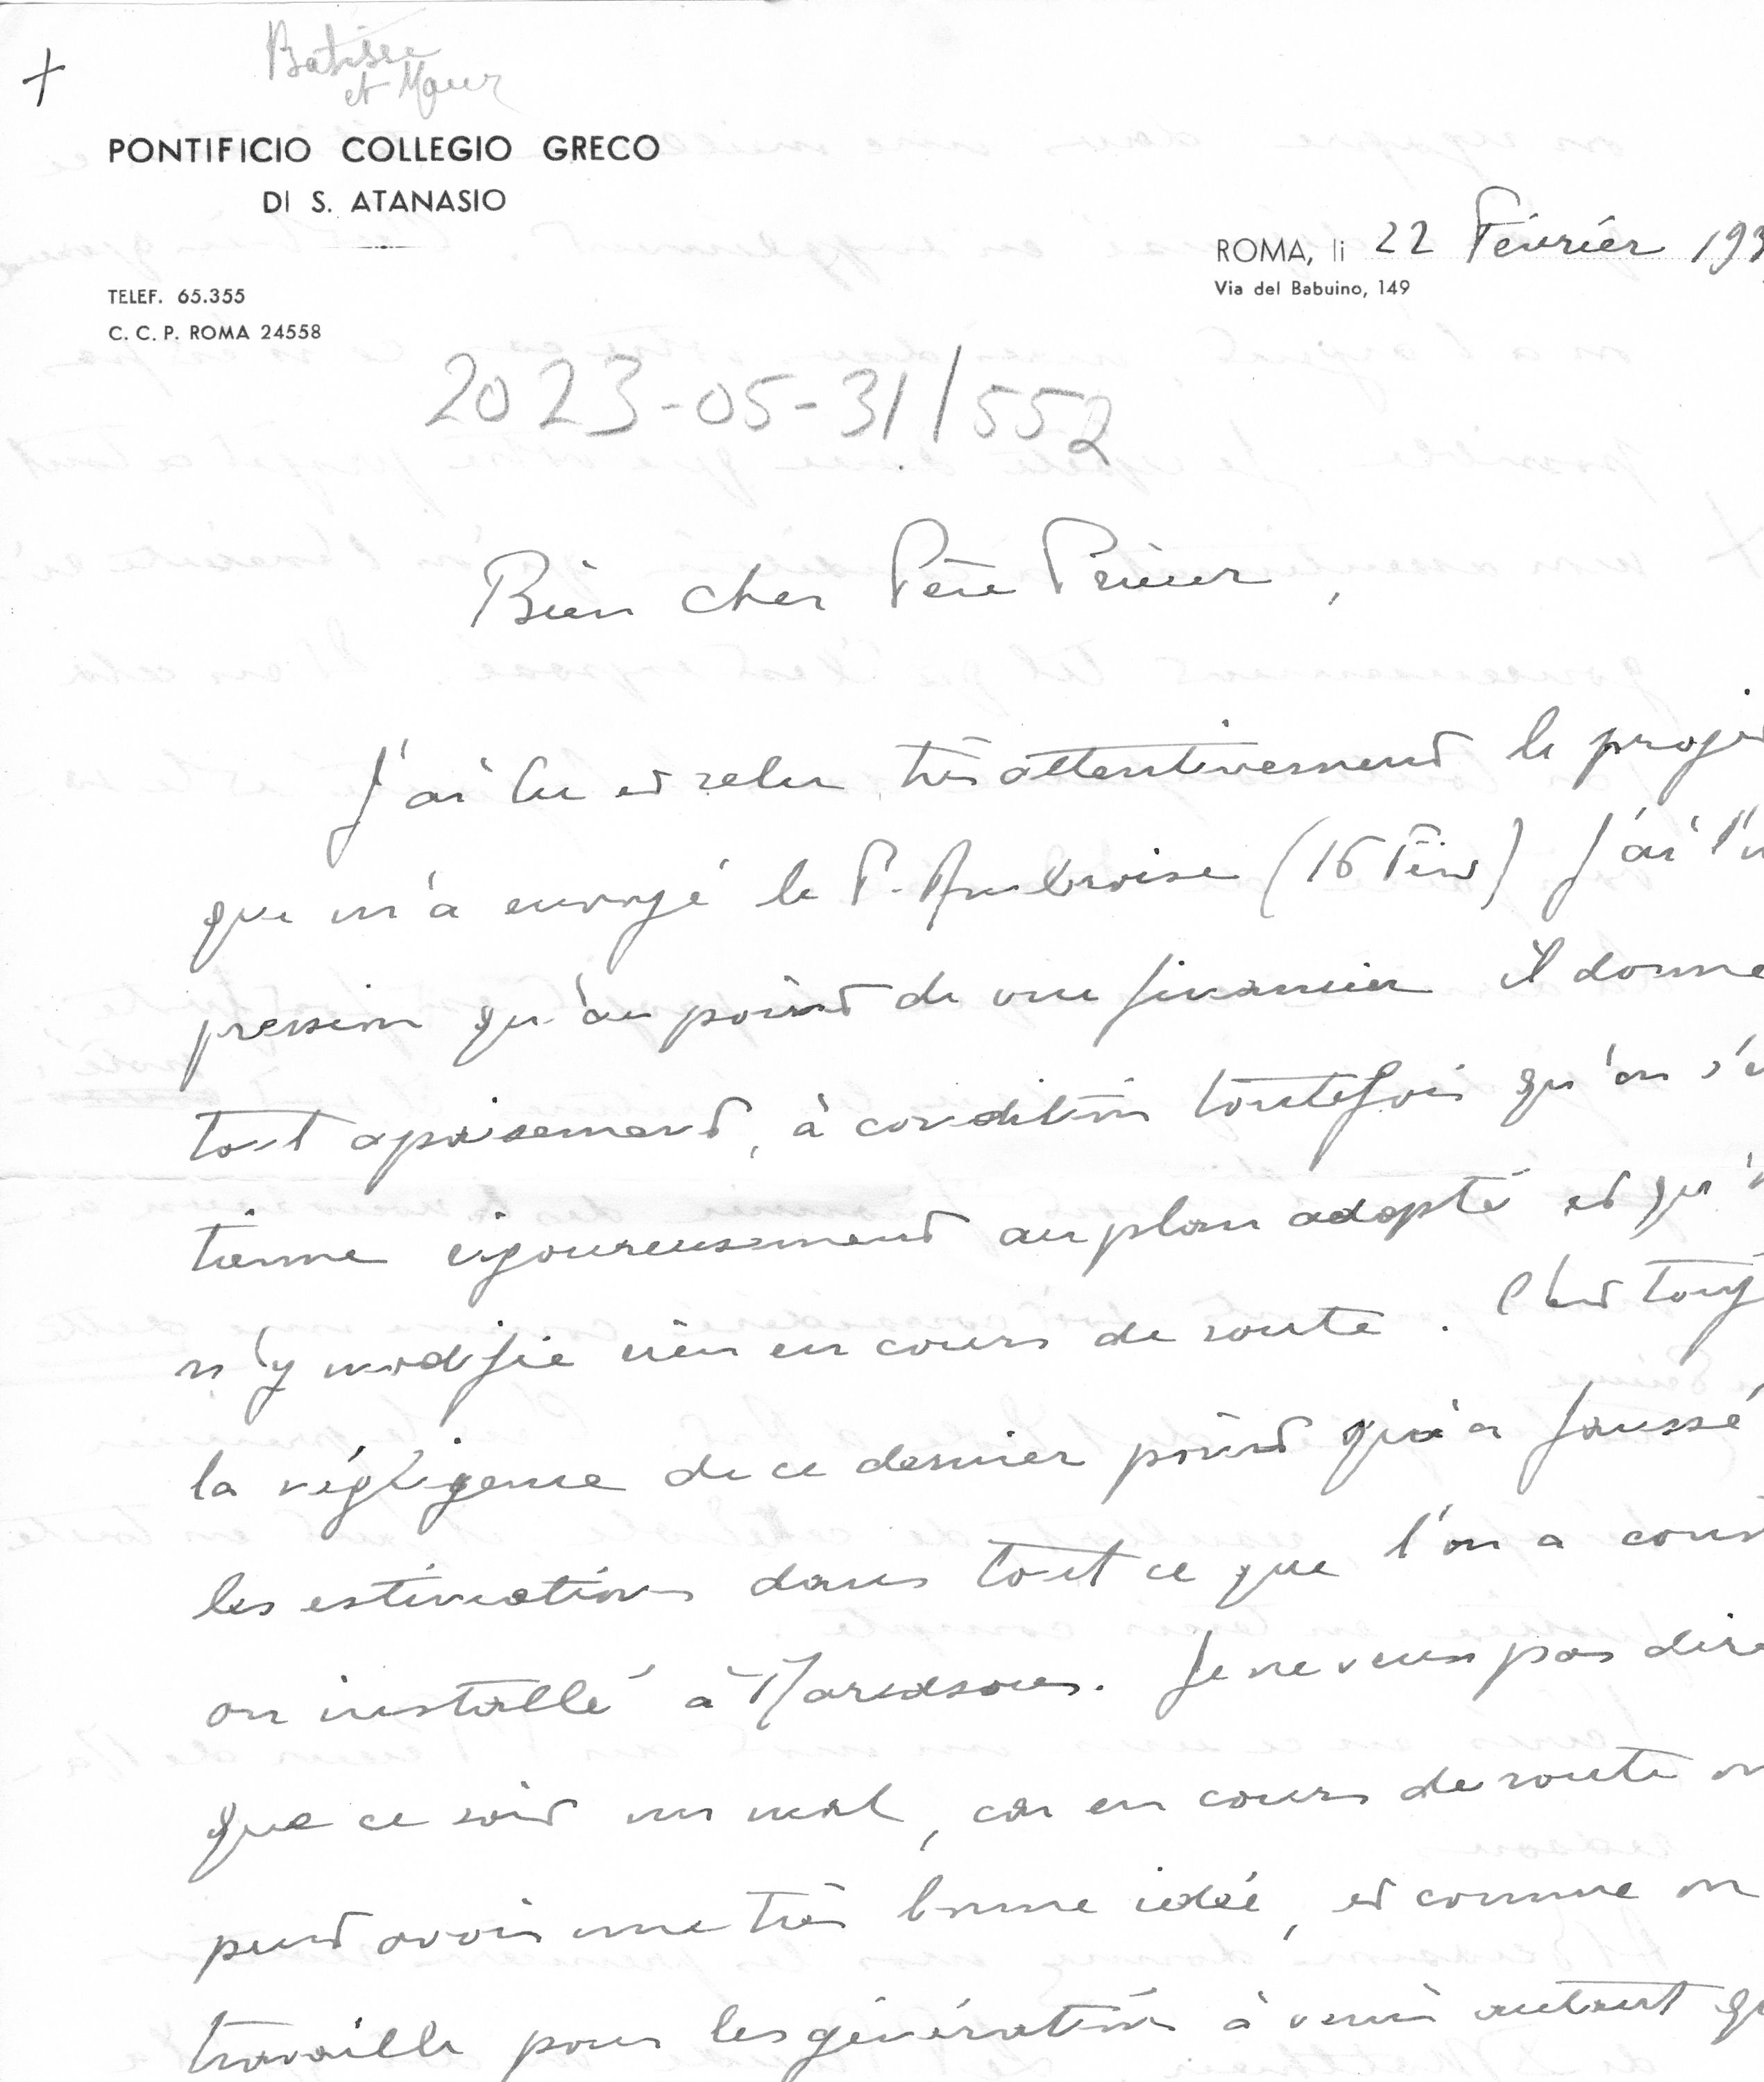 +
et Maur
PONTIFICIO COLLEGIO GRECO
DI S. ATANASIO
ROMA, li 22 Février 193
Via del Babuino, 149
TELEF. 65.355
C. C. P. ROMA 24558
2023-05-31/552
Bien cher Père Prieur,
J'ai lu et relu très attentivement le projet
que m'a envoyé le P. Ambroise (16 Févr) J'ai l'im
pression qu'au point de vue financier il donne
tout apaisement, à condition toutefois qu'on s'en
tienne rigoureusement au plan adopté et qu'on
n'y modifie rien en cours de route. C'est touj
la négligence de ce dernier point qui a faussé
les estimations dans tout ce que l'on a const
ou installé à Maredsous. Je ne veux pas dire
que ce soit un mal, car en cours de route on
peut avoir une très bonne idée, et comme on
travaille pour les générations à venir autant qu